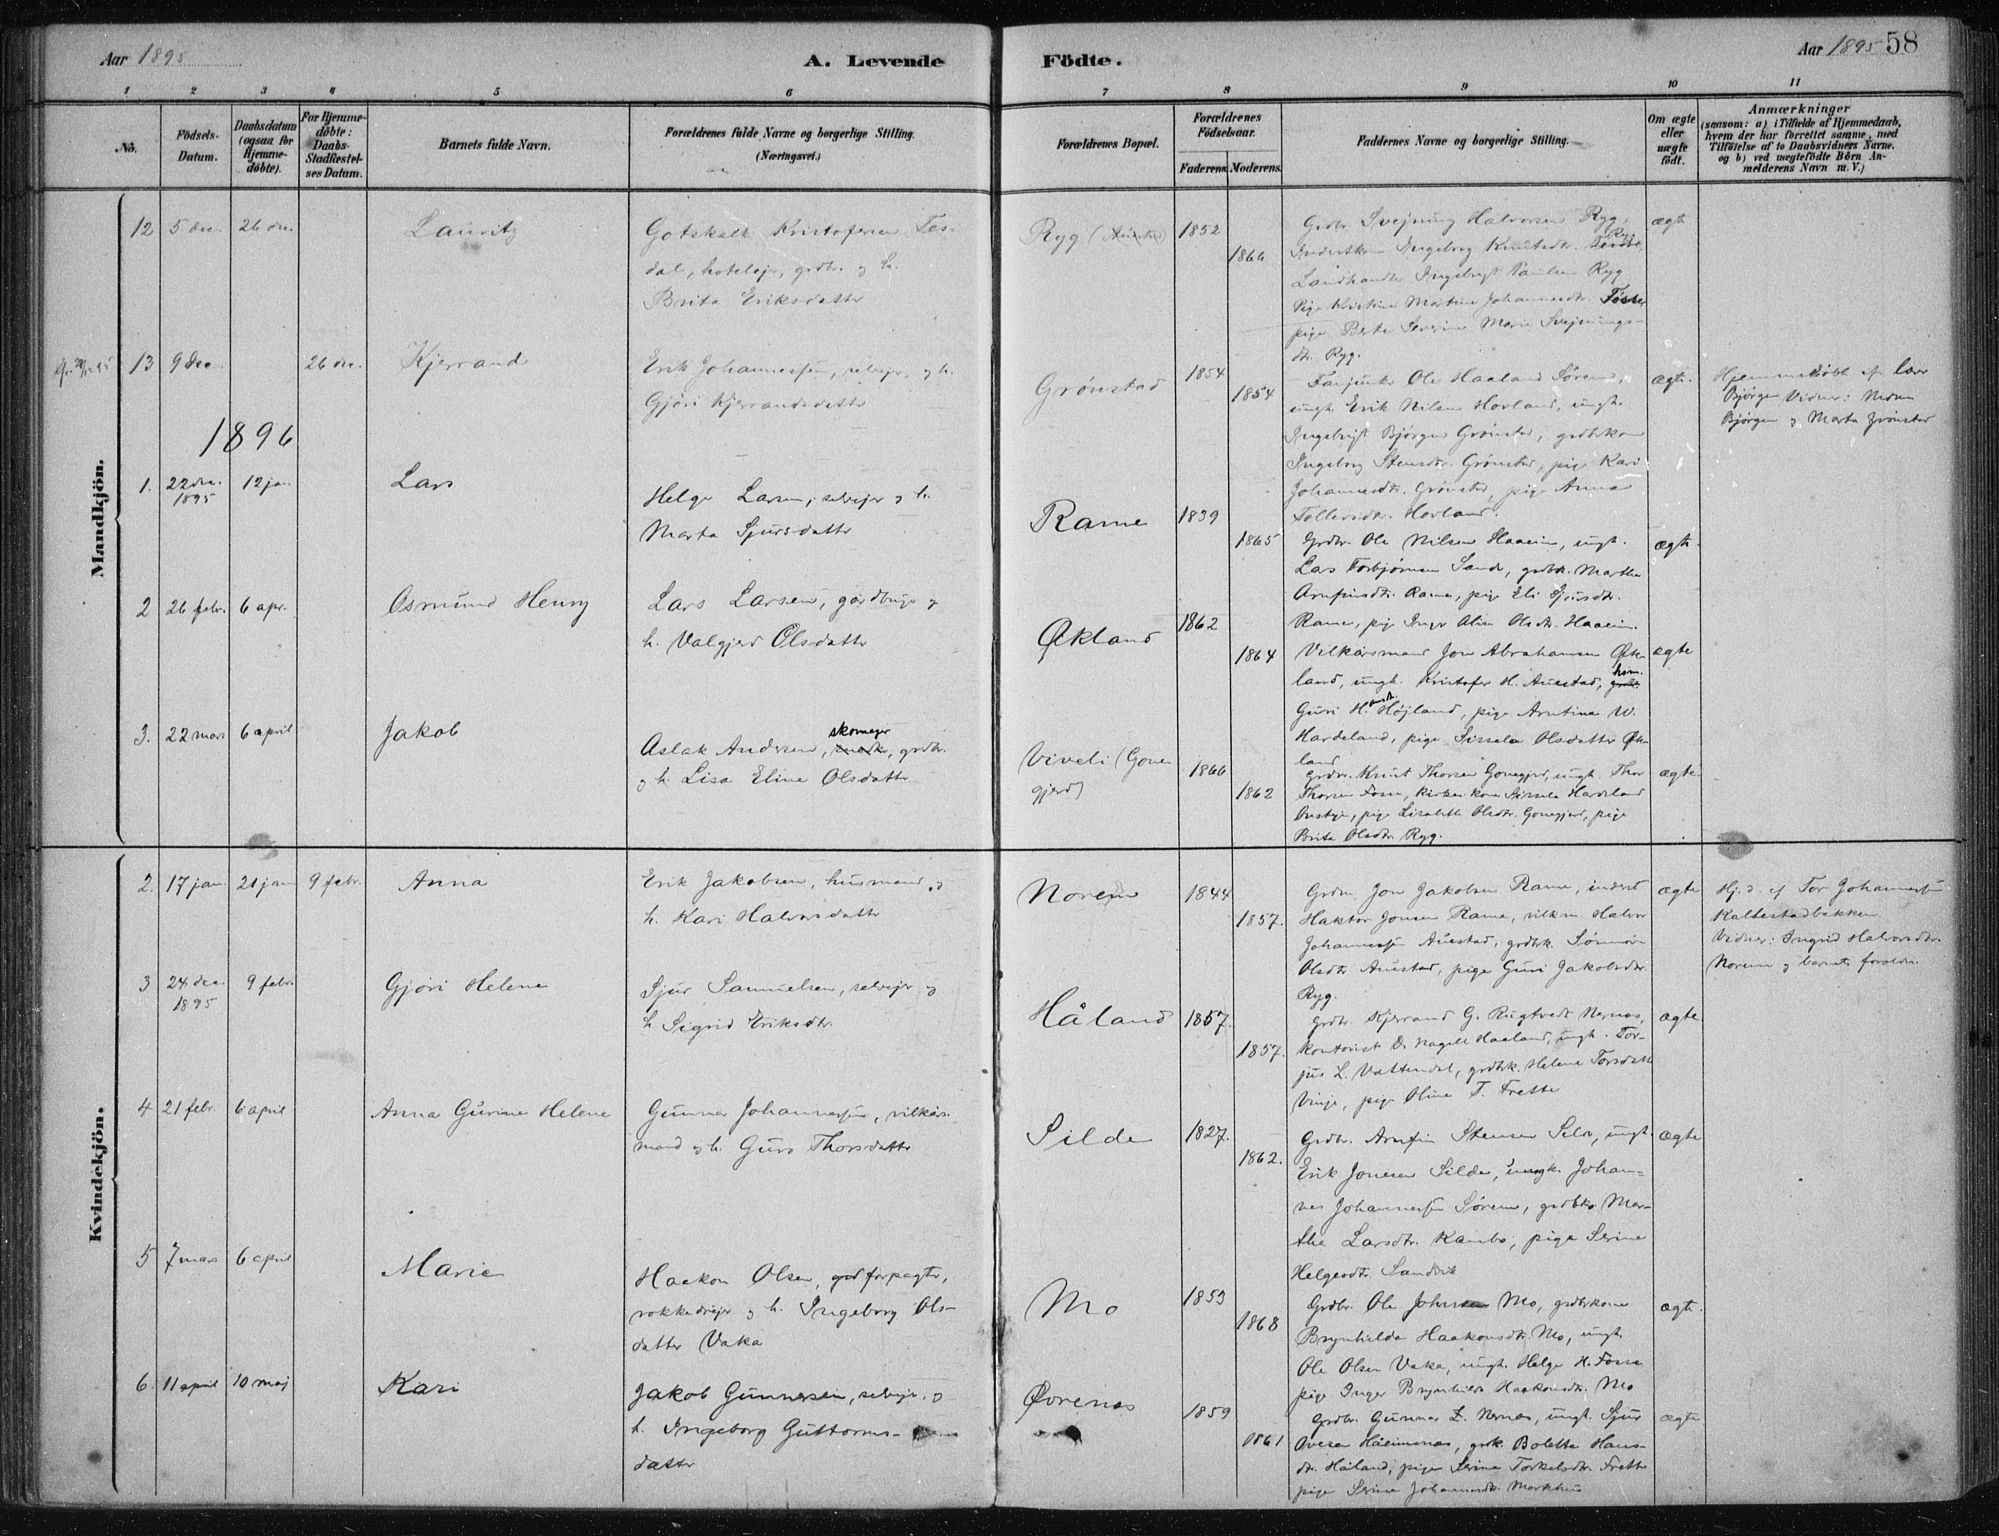 Aar 1895
A. Levende
Födte.
Aar 1895
58
1 2 3 4 5 6 7 8 9 10 11
No.
Födsels-
Datum.
Daabsdatum
(ogsaa for
Hjemme-
døbte).
For Hjemme-
døbte:
Daabs-
Stadfæstel-
ses Datum.
Barnets fulde Navn.
Forældrenes fulde Navne og borgerlige Stilling.
(Næringsvei.)
Forældrenes Bopæl.
Forældrenes
Födselsaar.
Faderens. Moderens.
Faddernes Navne og borgerlige Stilling.
Om ægte
eller
uægte
födt.
Anmærkninger
(saasom: a) i Tilfælde af Hjemmedaab,
hvem der har forrettet samme, med
Tilföielse af to Daabsvidners Navne,
og b) ved uægtefödte Börn An-
melderens Navn m. V.)
Mandkjön.
12 5 dec. 26 dec. Lauritz
Gotskalk Kristofersen Tes-
dal, hotelejr, grdbr. og h.
Brita Eriksdatter
Ryg 1852
1866
Grdbr Svejning Halvorsen Ryg,
Inderstkone Ingeborg Knutsdtr. Ryg
Landhandler Ingebrigt Paulsen Ryg
Pige Kristine Martine Johannesdtr.
pige Berte Severine Marie Svejnings-
dtr. Ryg.
ægte
13 9 dec. 26 dec. Kjerrand
Erik Johannessen, selvejer, og h.
Gjöri Kjerrandsdatter
Grönstad 1854
1854
Ole Haaland Sörem,
ungk. Erik Nilsen Hovland, ungk.
Ingebrigt Bjørgen Grönstad, grdbrkone
Ingeborg Stensdtr. Grönstad, pige Kari
Johannesdtr. Grönstad, pige Anna
Tollevsdtr. Hovland.
ægte.
Hjemmedöbt af
Bjørgen Vidner:
Bjørgen og Marta Grönstad
1896
1. 22 dec.
1895 12 jan. Lars
Helge Larsen, selvejer og h.
Marta Sjursdatter
Rame 1839
1865
Grdbr. Ole Nilsen Haaeim, ungk.
Lars Torbjörnsen Sande, grdbrk. Martha
Arnfinsdtr. Rame, pige Eli Sjursdtr.
Rame, pige Inger Olsdtr. Haaeim.
ægte
2 26 febr. 6 apr. Osmund Henry
Lars Larsen, gårdbruger og
h. Valgjerd Olsdatter
Økland 1862
1864
Vilkårsmand Jon Abrahamsen Øk-
land, ungk. Kristofer H. Austad,
Guri H. Højland, pige Arntine W.
Hardeland, pige Sissela Olsdatter Øk-
land
ægte
3. 22 mars 6 april Jakob
Aslak Andersen, skomager, grdbr.
og h. Lisa Eline Olsdatter
Viveli (Gone
gjerd) 1866
1862
Grdbr. Knut Thorsen Gonegjerd, ungk. Thor
Thorsen Fosse, kone Sissela Hardeland
pige Lisabeth Olsdtr. Gonegjerd, pige
Brita Olsdtr. Ryg.
ægte
Kvindekjön.
2. 17 jan 21 jan 9 febr. Anna
Erik Jakobsen, husmand og
h. Kari Halvorsdatter
Norem 1844
1857.
Grdm Jon Jakobsen Rame, inderst
Haktor Jonsen Rame, vilkm. Halvor
Johannessen Austad, grdbrk. Sönneve
Olsdtr Austad, pige Guri Jakobsdtr.
Ryg.
ægte
Hj. d. af Tor Johannessen
Kaltestadbakken
Vidner: Ingrid Halvorsdtr.
Norem og barnets forældre.
3 24 dec.
1895 9 febr. Gjöri Helene
Sjur Samuelsen, selvejer og
h. Sigrid Eriksdtr.
Håland 1857.
1857.
Grdbr Kjerrand G. Rugtvedt Nernes,
kontorist O. Nagell Haaland, ungk. Tor-
jus L. Vattendal, grdbrk. Helene Torsdatter
Vinje, pige Oline T. Frette
ægte.
4 21 febr. 6 april Anna Gurine Helene
Gunnar Johannessen, vilkårs-
mand og h. Guro Thorsdatter
Silde 1827.
1862.
Grdbr. Arnfin Stensen Selv, ungk.
Erik Jonesen Silde, ungk. Johan-
nes Johannessen Sörem, grdbko Mar-
the Larsdtr. Kambo, pige Serine
Helgesdtr. Sandvik
ægte
5 7 mars 6 april Marie
Haakon Olsen, grdforpagter,
rokkedrejer og h. Ingeborg Ols-
datter Vaka
Mo 1853
1868
Grdbr. Ole Johnsen Mo, grdbrkone
Brynhilda Haakonsdtr. Mo, ungk.
Ole Olsen Vaka, ungk. Helge H. Fosse
pige Inger Brynhild Haakonsdtr. Mo
ægte.
6. 11 april 10 maj Kari
Jakob Gunnarsen, selvejer, og
h. Ingeborg Guttorms-
datter
Øvrenes 1859
1861
Grdbr. Gunnar L. Nernes, ungk. Sjur
Håeimsnes, grdk. Bolette Hans-
dtr. Håland, pige Serine Torkelsdtr. Frette
pige Serine Johannesdtr. Markhus
ægte